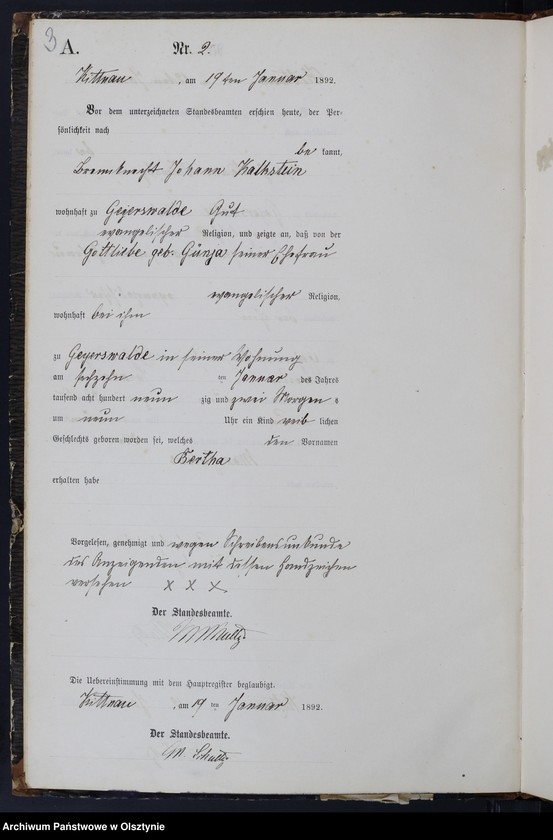 3 A. Nr. 2.
Kittnau, am 19ten Januar 1892.
Vor dem unterzeichneten Standesbeamten erschien heute, der Per-
sönlichkeit nach
be kannt,
Johann Kalkstein
wohnhaft zu Geyerswalde Gut
evangelischer Religion, und zeigte an, daß von der
Gottliebe geb. Günja seiner Ehefrau
evangelischer Religion,
wohnhaft bei ihm
zu Geyerswalde in seiner Wohnung
am sechzehn ten Januar des Jahres
tausend acht hundert neun zig und zwei Morgen s
um neun Uhr ein Kind weib lichen
Geschlechts geboren worden sei, welches den Vornamen
Bertha
erhalten habe
Vorgelesen, genehmigt und wegen Schreibensunkunde
des Anzeigenden mit dessen Handzeichen
versehen X X X
Der Standesbeamte.
Die Uebereinstimmung mit dem Hauptregister beglaubigt.
Kittnau, am 19 ten Januar 1892.
Der Standesbeamte.
M. Schultz
Archiwum Państwowe w Olsztynie